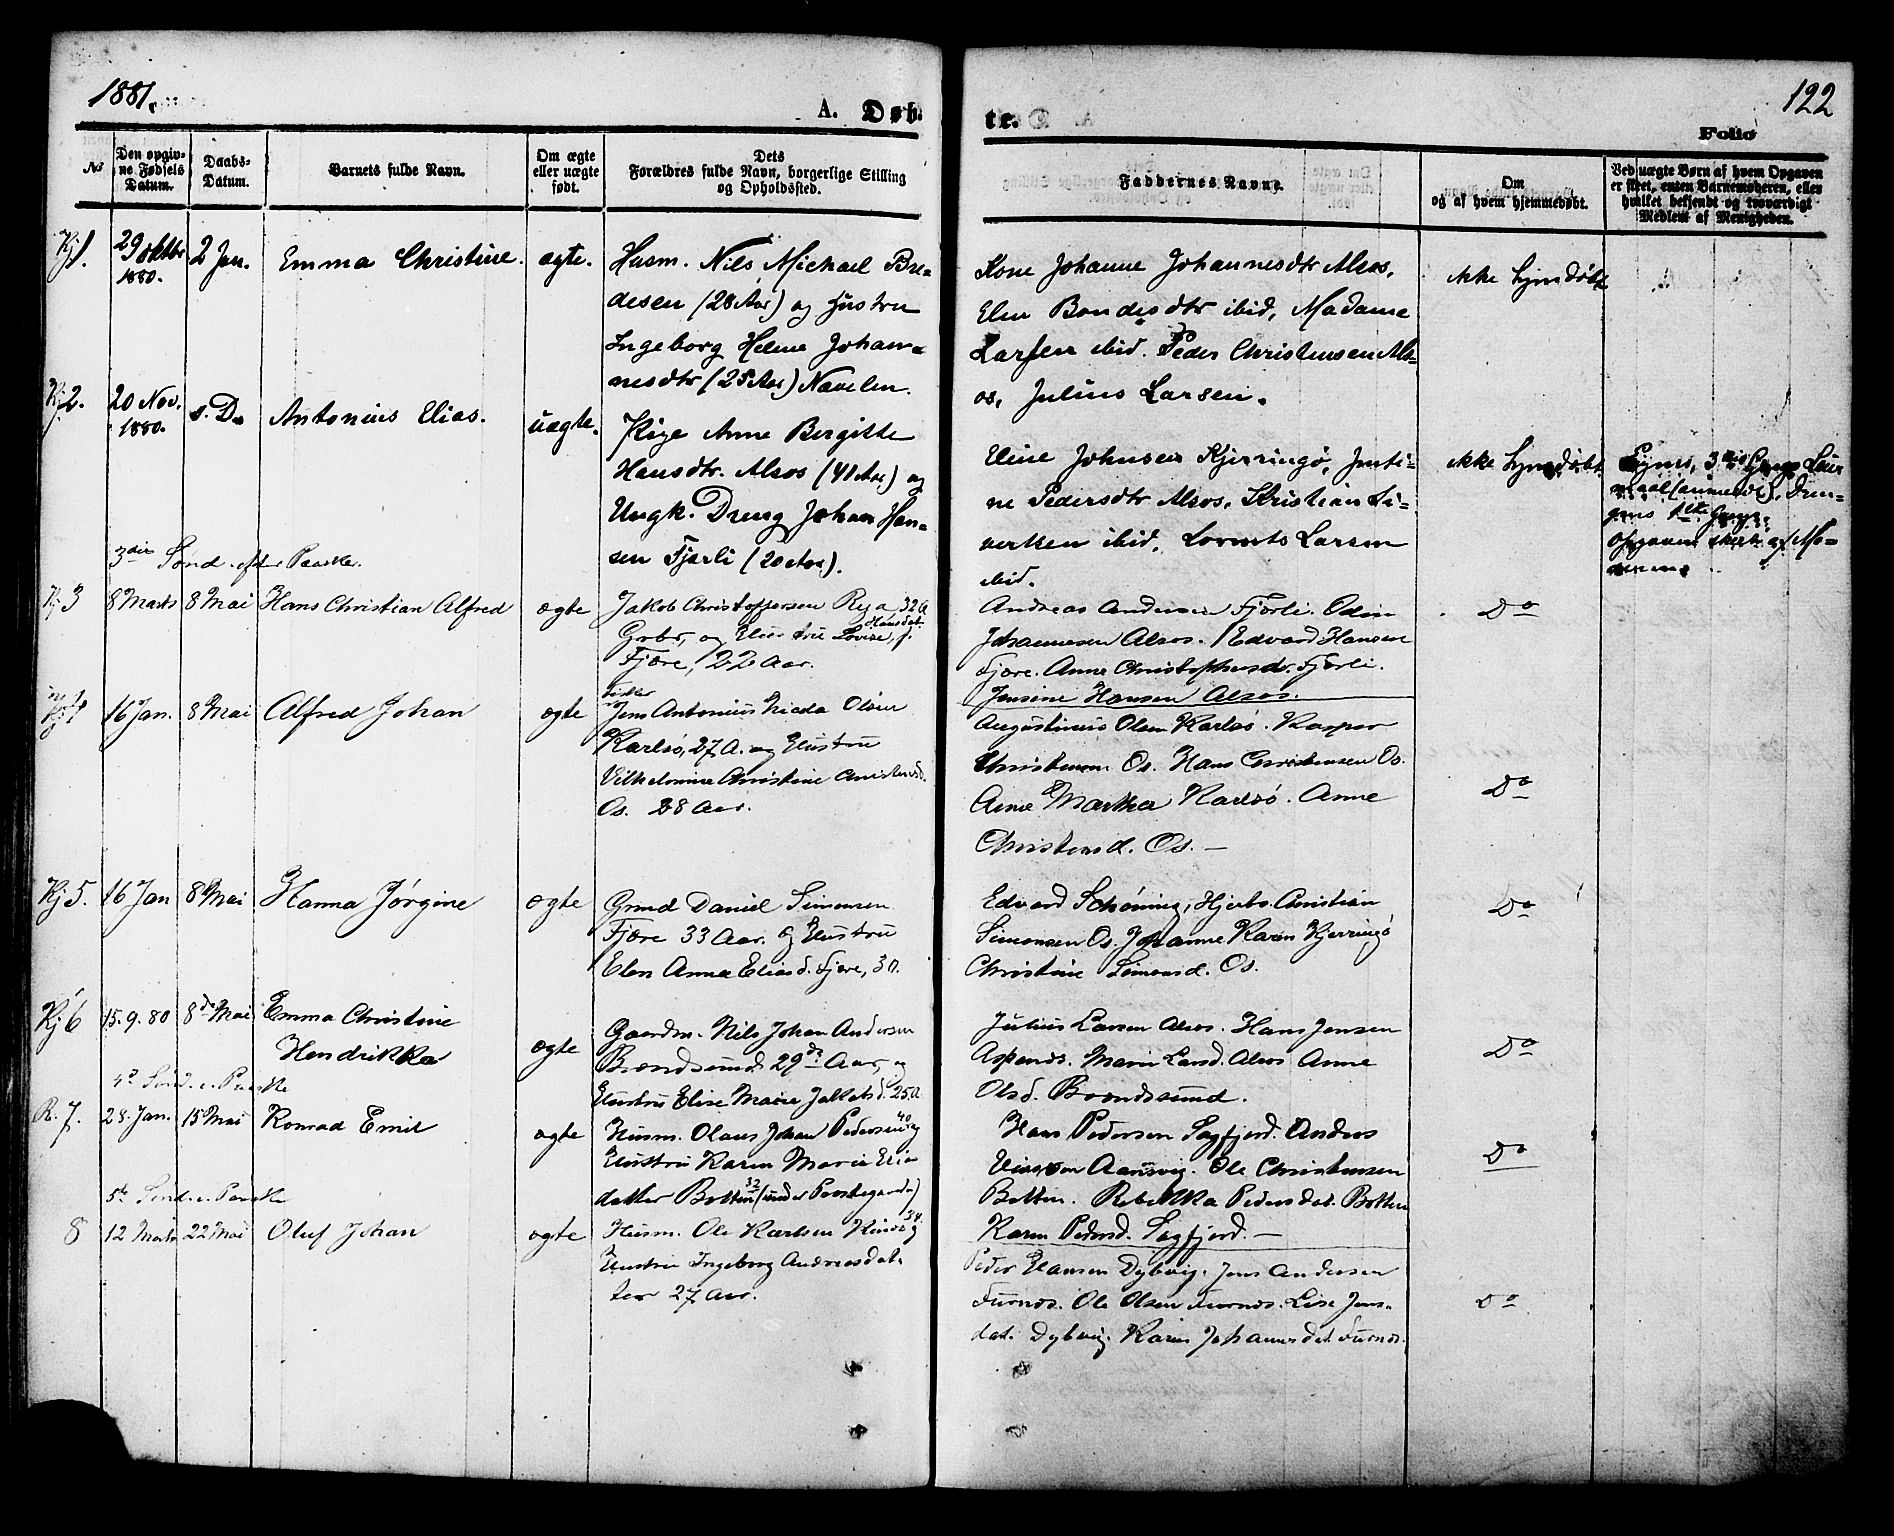 1881.
A. Døb-
№
Den opgiv-
ne Fødsels
Datum.
Daabs-
Datum.
Barnets fulde Navn.
Om ægte
eller uægte
født.
Dets
Forældres fulde Navn, borgerlige Stilling
og Opholdssted.
Kj 1.
29 oktbr
1880.
2 Jan.
Emma Christine.
ægte.
Husm. Nils Michael Bre-
desen (28 Aar) og Hustru
Ingeborg Helene Johan-
nesdtr (25 Aar) Navelen.
Kj 2.
20 Nov.
1880.
s. D.
Antonius Elias.
uægte.
Pige Anne Bergitte
Hansdtr. Alsos (41 Aar) og
Ungk. Dreng Johan Han-
sen Fjærli (20 Aar).
3die Sønd. efter Paaske.
Kj 3
8 Marts
8 Mai
Hans Christian Alfred
ægte
Jakob Christoffersen 32 A
Hansdat.
Gbr, og Hustru Lovise,
Fjære, 22 Aar.
Kj 4
16 Jan.
8 Mai
Alfred Johan
ægte
Jens Antonius Olsen
Karlsø, 27 A. og Hustru
Vilhelmine Christine Christensd.
Os. 28 Aar.
Kj 5.
16 Jan
8 Mai
Hanna Jørgine
ægte
Daniel Simonsen
Fjære 33 Aar. og Hustru
Elen Anna Eliasd. Fjære, 30.
Kj 6
15. 9. 80
8de Mai
Emma Christine
Hendrikka
ægte
Gaardm. Nils Johan Andersen
Brændsund 29 de Aar, og
Hustru Elise Marie 25 A
4de Sønd. e. Paaske
R. 7.
28. Jan.
15 Mai
Konrad Emil
ægte
Husm. Olaus Johan Pedersen 40 og
Hustru Karen Marie Elia
datter Botten 32 (under Præstegaarden)
5te Sønd. e. Paaske
8
12 Marts
22 Mai
Oluf Johan
ægte
Husm. Ole Karlsen 34 og
Hustru Ingeborg Andreasdat-
ter 27 Aar.
122
te.
Folio
Faddernes Navne.
Om
og af hvem hjemmedøbt.
Ved uægte Børn af hvem Opgaven
er skeet, enten Barnemoderen, eller
hvilket bekjendt og troværdigt
Medlem af Menigheden.
Kone Johanne Johannesdtr Alsos,
Elen Bondesdtr ibid, Madame
Larsen ibid. Peder Christensen Als-
os, Julius Larsen.
ikke hjemdøbt
Eline Johnsen Kjerringø, Justi-
ne Pedersdtr Alsos, Kristian Si-
vertsen ibid, Lorents Larsen
ibid.
ikke hjemdøbt.
Pigens 3die Gangs Leier
maal (anmeldt). Dren-
gens 1ste Gang.
Opgaven skeet af Mo-
deren.
Andreas Andersen Fjærli. Odin
Johannesen Alsos. Edvard Hansen
Fjære. Anne Christophersdr. Fjærli.
Jensine Hansen Alsos.
Do
Augustinus Olsen Karlsø. Kasper
Christensen Os. Hans Christensen Os.
Anne Martha Karlsø. Anne
Christensd. Os. —
Do
Edvard Schøning, Hjertø. Christian
Simonsen Os. Johanne Karen Kjerringø
Christine Simonsd. Os.
Do
Julius Larsen Alsos. Hans Jensen
Aspenæs. Marie Larsd. Alsos Anne
Olsd. Brændsund.
Do
Hans Pedersen Sagfjord. Anders
Eliassen Aarsvig. Ole Christensen
Botten. Rebekka Pedersdat. Botten
Karen Pedersd. Sagfjord. —
Do
Peder Hansen Dybvig. Jens Andersen
Furnæs. Ole Olsen Furnæs. Lise Jens-
dat. Dybvig. Karen Johannesdat. Furnæs.
Do